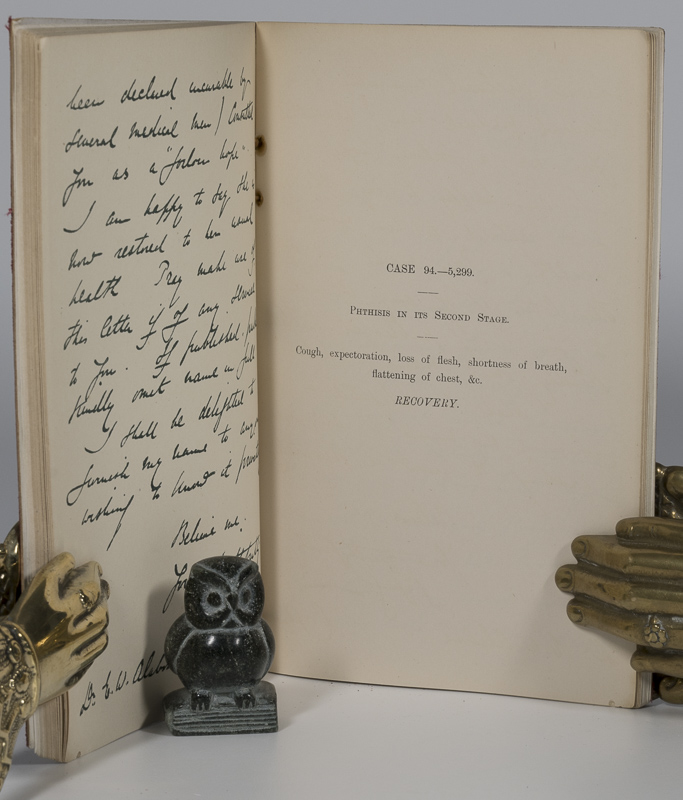 been declared incurable by
several medical men I consulted
you as a "forlorn hope"
I am happy to say she is
now restored to her usual
health Pray make use of
this letter if of any service
to you. If published
kindly omit name in full
I shall be delighted to
furnish my name to any
wishing to know it
Believe me,
Dr. E. W.
CASE 94.—5,299.
Phthisis in its Second Stage.
Cough, expectoration, loss of flesh, shortness of breath,
flattening of chest, &c.
RECOVERY.